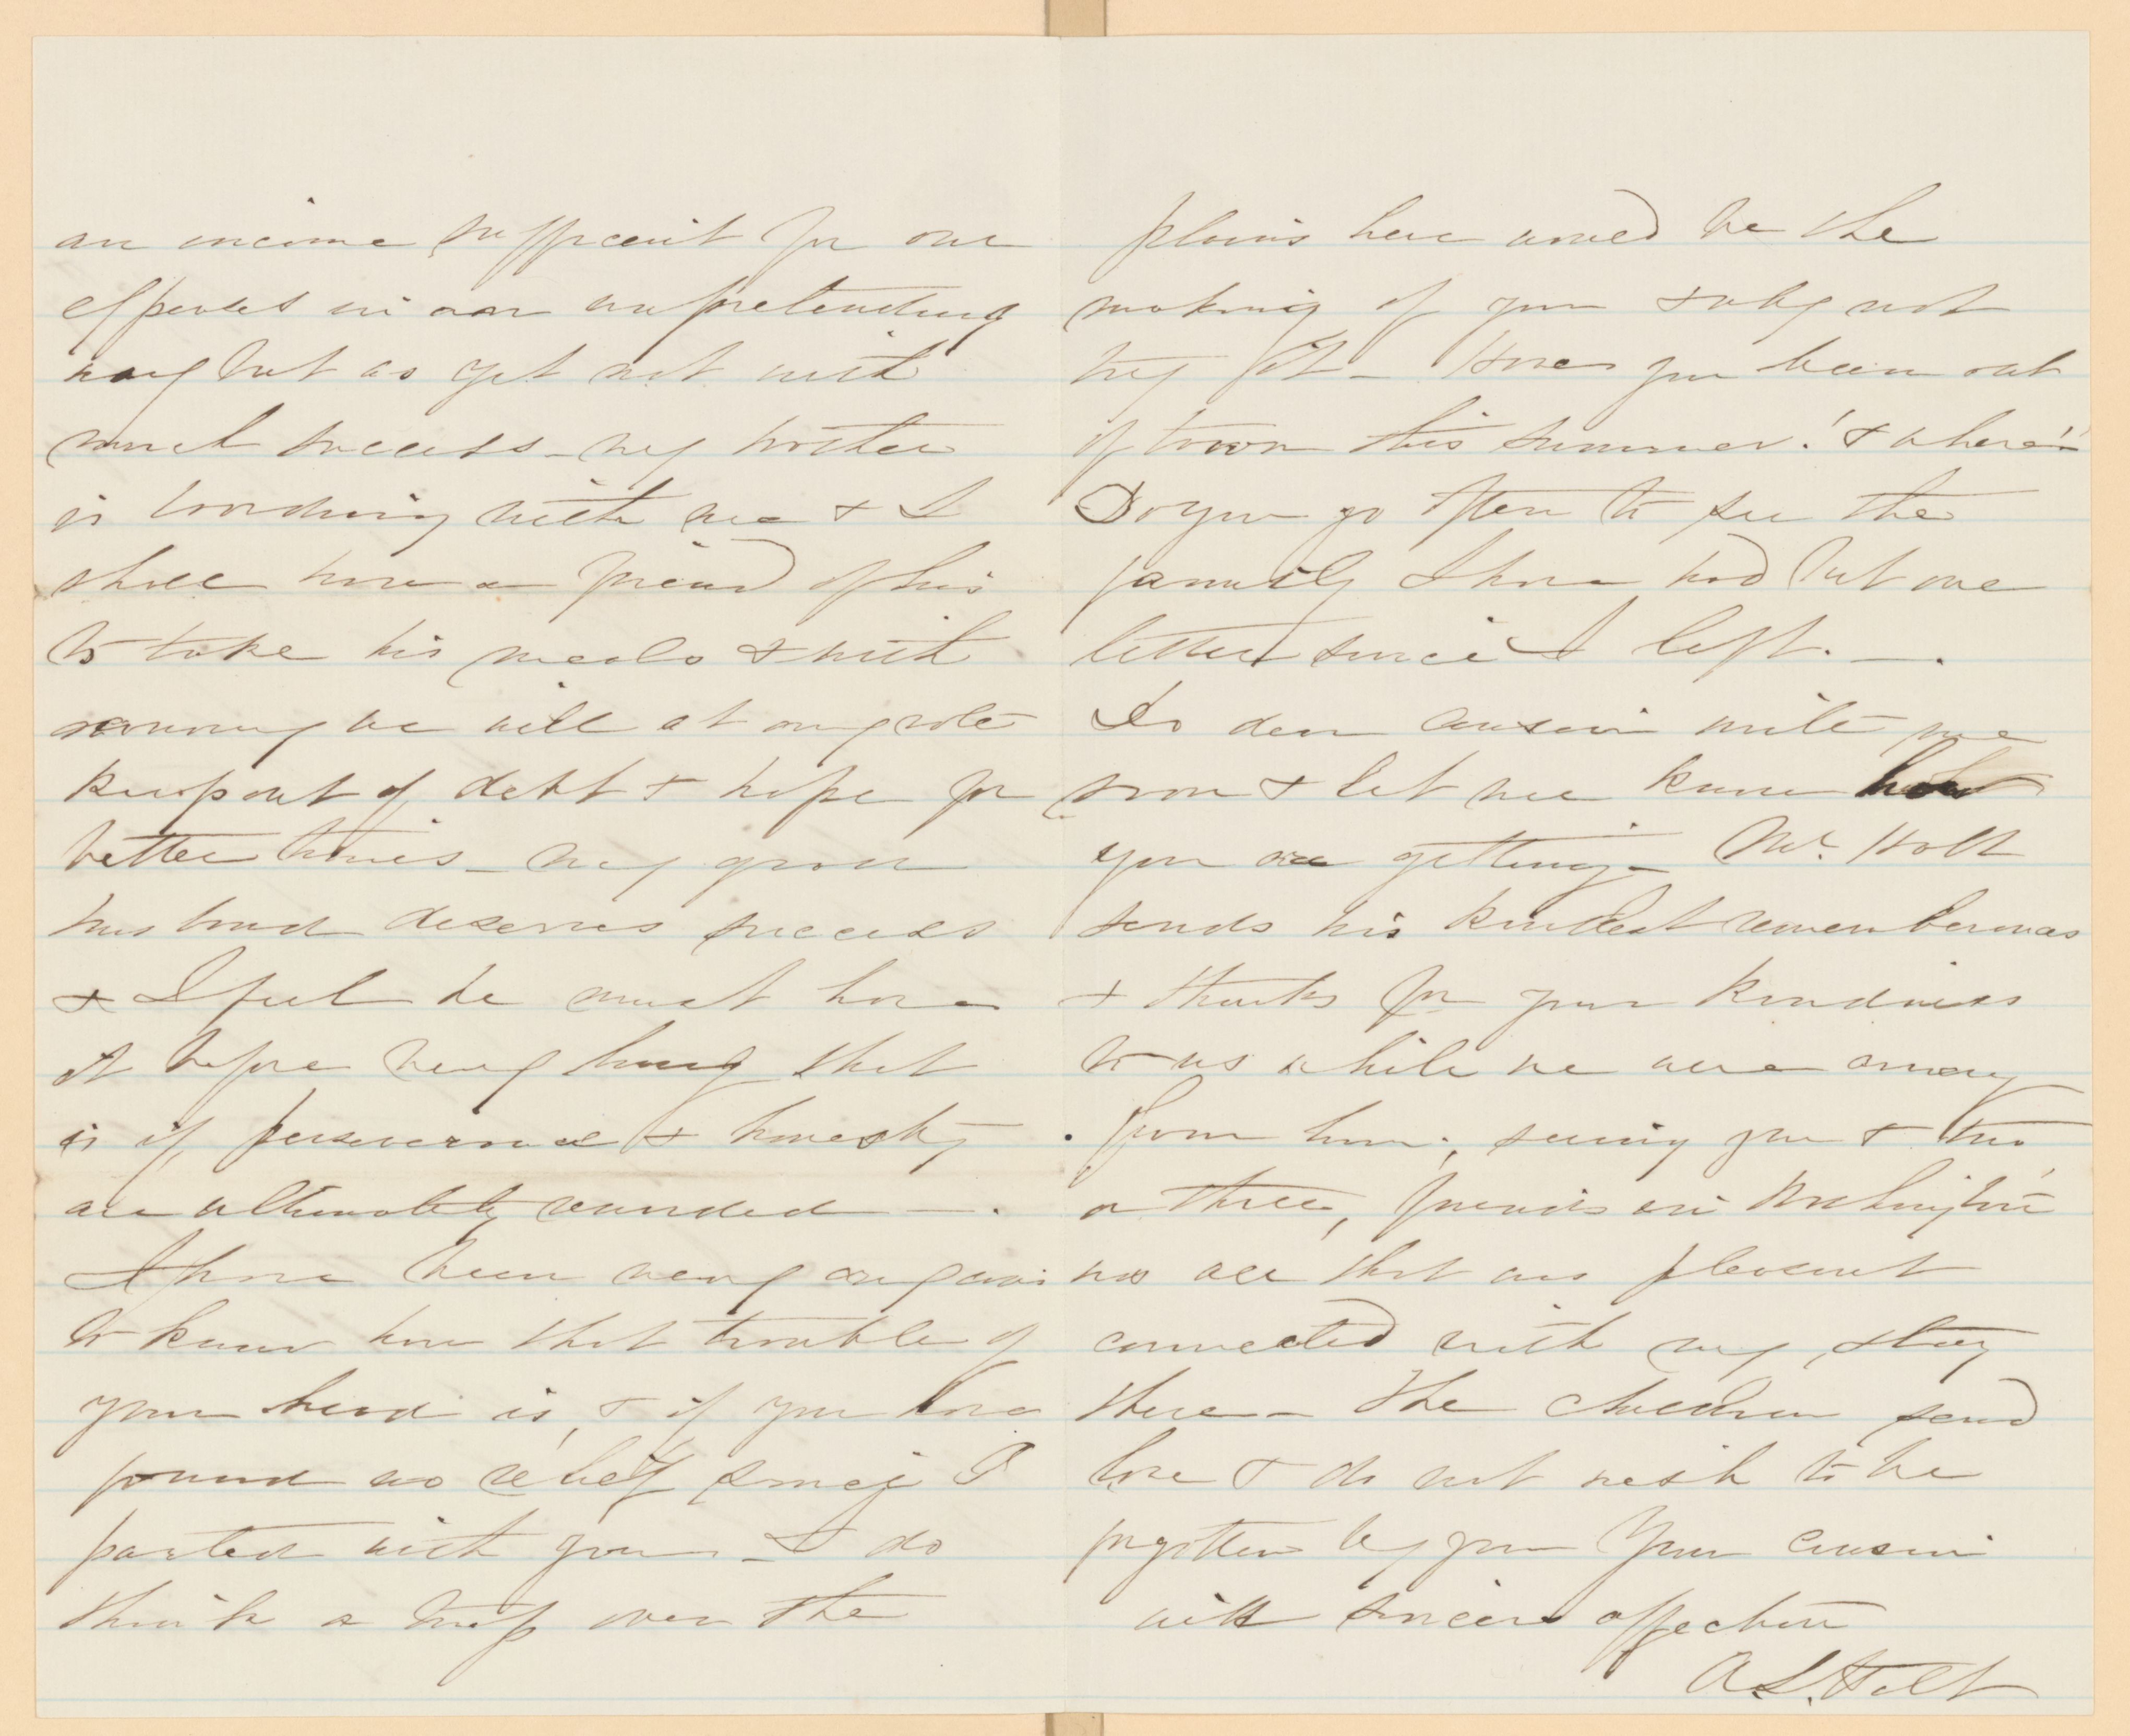 an income sufficient for our
expenses in our unpretending
way but as yet not with
much success - my brother
is boarding with me & I
shall have a friend of his
to take his meals & with
economy we will at any rate
keep out of debt & hope for
better times - my good
husband deserves success
& I feel he must have
it before very long that
is if perseverance & honesty
are ultimately rewarded - .
I have been very anxious
to know how that trouble of
your head is, & if you have
found no relief since I
parted with you - I do
think a trip over the
plains here would be the
making of you & why not
try it - Have you been out
of town this summer! & where!
Do you go often to see the
family I have had but one
letter since I left. - .
Do dear cousin write me
soon & let me know how
you are getting - Mr. Holt
sends his kindest remembrances
& thanks for your kindness
to us while we were away
from him, seeing you & two
or three, friends in Washington
was all that was pleasant
connected with my stay
there - The children send
love & do not wish to be
forgotten by you Your cousin
with sincere affection
A. L. Holt